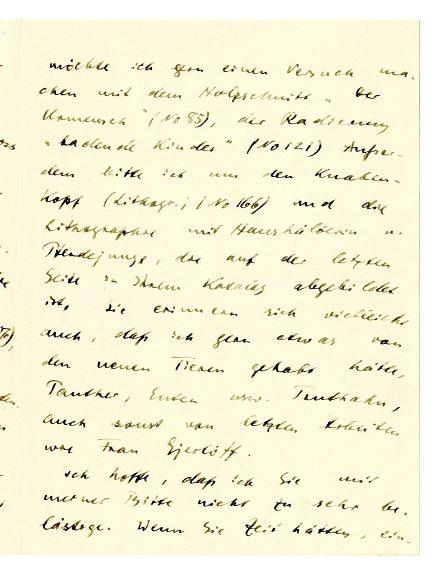 möchte ich gern einen Versuch ma-
chen mit dem Holzschnitt „Der
Urmensch" (No 85), der Radierung
„badende Kinder" (No 121) Außer-
dem bitte ich um den Knaben-
kopf (Lithogr.; No 166) und die
Lithographie mit Haushälterin u.
Pferdejunge, die auf der letzten
Seite in Ihrem Katalog abgebildet
ist, sie erinnern sich vielleicht
auch, daß ich gern etwas von
den neuen Tieren gehabt hätte,
Panther, Enten usw. Truthahn,
auch sonst von letzten Arbeiten
wie Frau Gjerlöff.
Ich hoffe, daß ich Sie mit
meiner Bitte nicht zu sehr be-
lästige. Wenn Sie Zeit hätten, ein-